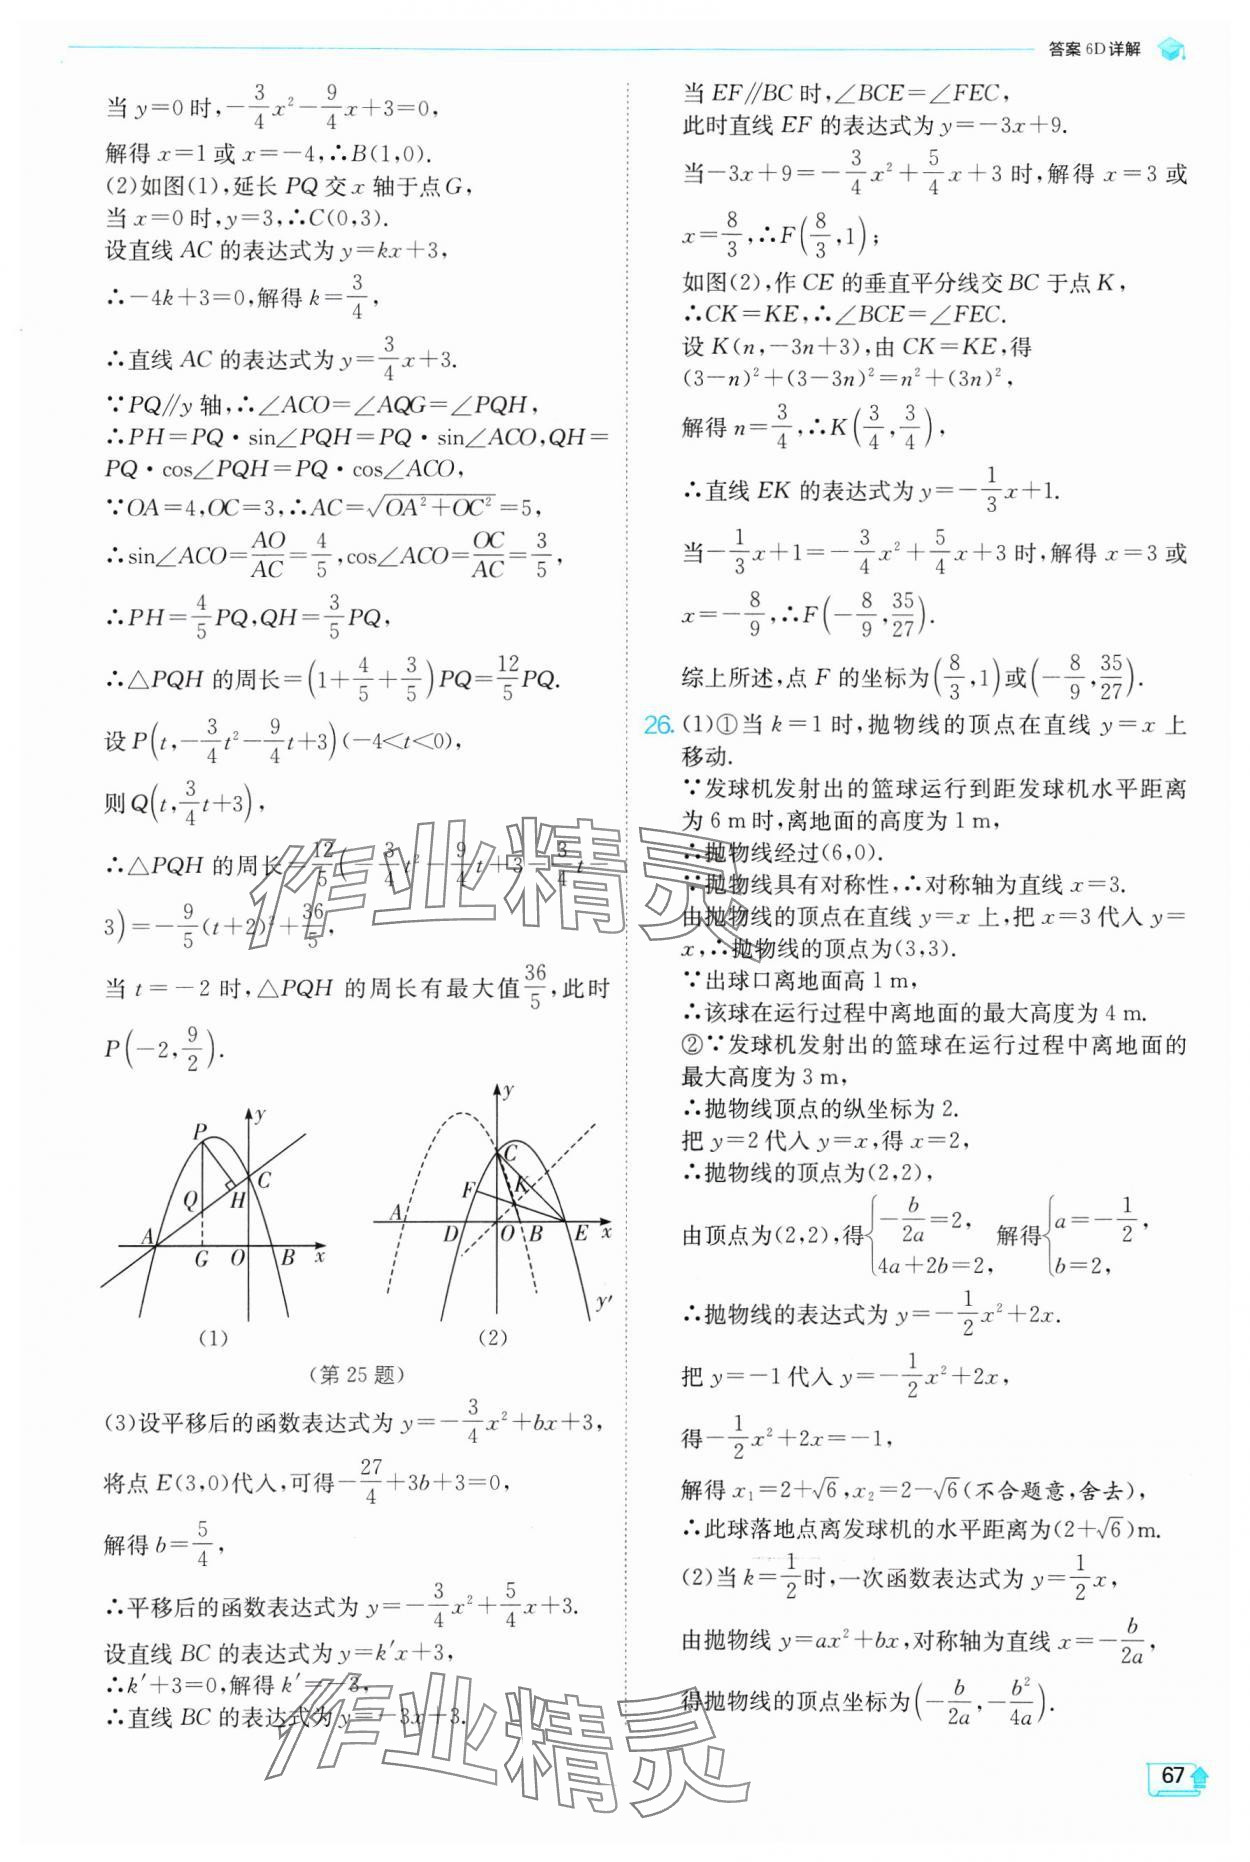 答案 6D详解
当 y=0 时,-3/4x²-9/4x+3=0,
解得 x=1 或 x=-4,∴B(1,0).
(2)如图(1),延长 PQ 交 x 轴于点G,
当 x=0 时,y=3,∴C(0,3).
设直线 AC 的表达式为 y=kx+3,
∴-4k+3=0,解得 k=3/4,
∴直线 AC 的表达式为 y=3/4x+3.
∵PQ∥y 轴,∴∠ACO=∠AQG=∠PQH,
∴PH=PQ·sin∠PQH=PQ·sin∠ACO,QH=
PQ·cos∠PQH=PQ·cos∠ACO,
∵OA=4,OC=3,∴AC=√(OA²+OC²)=5,
∴sin∠ACO=AO/AC=4/5,cos∠ACO=OC/AC=3/5,
∴PH=4/5PQ,QH=3/5PQ,
∴△PQH 的周长=(1+4/5+3/5)PQ=12/5PQ.
设 P(t,-3/4t²-9/4t+3)(-4<t<0),
则 Q(t,3/4t+3),
∴△PQH 的周长=12/5(-3/4t²-9/4t+3-3/4t
3)=-9/5(t+2)²+36/5,
当 t=-2 时,△PQH 的周长有最大值36/5,此时
P(-2,9/2).
y
P
C
Q
H
A
G O B x
(1)
y
C
F
K
A
D O B E x
y′
(2)
(第 25 题)
(3)设平移后的函数表达式为 y=-3/4x²+bx+3,
将点 E(3,0)代入,可得-27/4+3b+3=0,
解得 b=5/4,
∴平移后的函数表达式为 y=-3/4x²+5/4x+3.
设直线 BC 的表达式为 y=k′x+3,
∴k′+3=0,解得 k′=-3,
∴直线 BC 的表达式为 y=-3x+3.
当 EF∥BC 时,∠BCE=∠FEC,
此时直线 EF 的表达式为 y=-3x+9.
当-3x+9=-3/4x²+5/4x+3 时,解得 x=3 或
x=8/3,∴F(8/3,1);
如图(2),作 CE 的垂直平分线交 BC 于点 K,
∴CK=KE,∴∠BCE=∠FEC.
设 K(n,-3n+3),由 CK=KE,得
(3-n)²+(3-3n)²=n²+(3n)²,
解得 n=3/4,∴K(3/4,3/4),
∴直线 EK 的表达式为 y=-1/3x+1.
当-1/3x+1=-3/4x²+5/4x+3 时,解得 x=3 或
x=-8/9,∴F(-8/9,35/27).
综上所述,点 F 的坐标为(8/3,1)或(-8/9,35/27).
26. (1)①当 k=1 时,抛物线的顶点在直线 y=x 上
移动.
∵发球机发射出的篮球运行到距发球机水平距离
为 6 m 时,离地面的高度为 1 m,
∴抛物线经过(6,0).
∵抛物线具有对称性,∴对称轴为直线 x=3.
由抛物线的顶点在直线 y=x 上,把 x=3 代入 y=
x,∴抛物线的顶点为(3,3).
∵出球口离地面高 1 m,
∴该球在运行过程中离地面的最大高度为 4 m.
②∵发球机发射出的篮球在运行过程中离地面的
最大高度为 3 m,
∴抛物线顶点的纵坐标为 2.
把 y=2 代入 y=x,得 x=2,
∴抛物线的顶点为(2,2),
由顶点为(2,2),得{-b/2a=2, 4a+2b=2, 解得{a=-1/2, b=2,
∴抛物线的表达式为 y=-1/2x²+2x.
把 y=-1代入 y=-1/2x²+2x,
得-1/2x²+2x=-1,
解得 x₁=2+√6,x₂=2-√6(不合题意,舍去),
∴此球落地点离发球机的水平距离为(2+√6)m.
(2)当 k=1/2时,一次函数表达式为 y=1/2x,
由抛物线 y=ax²+bx,对称轴为直线 x=-b/2a,
得抛物线的顶点坐标为(-b/2a,-b²/4a).
67
作业精灵
作业精灵